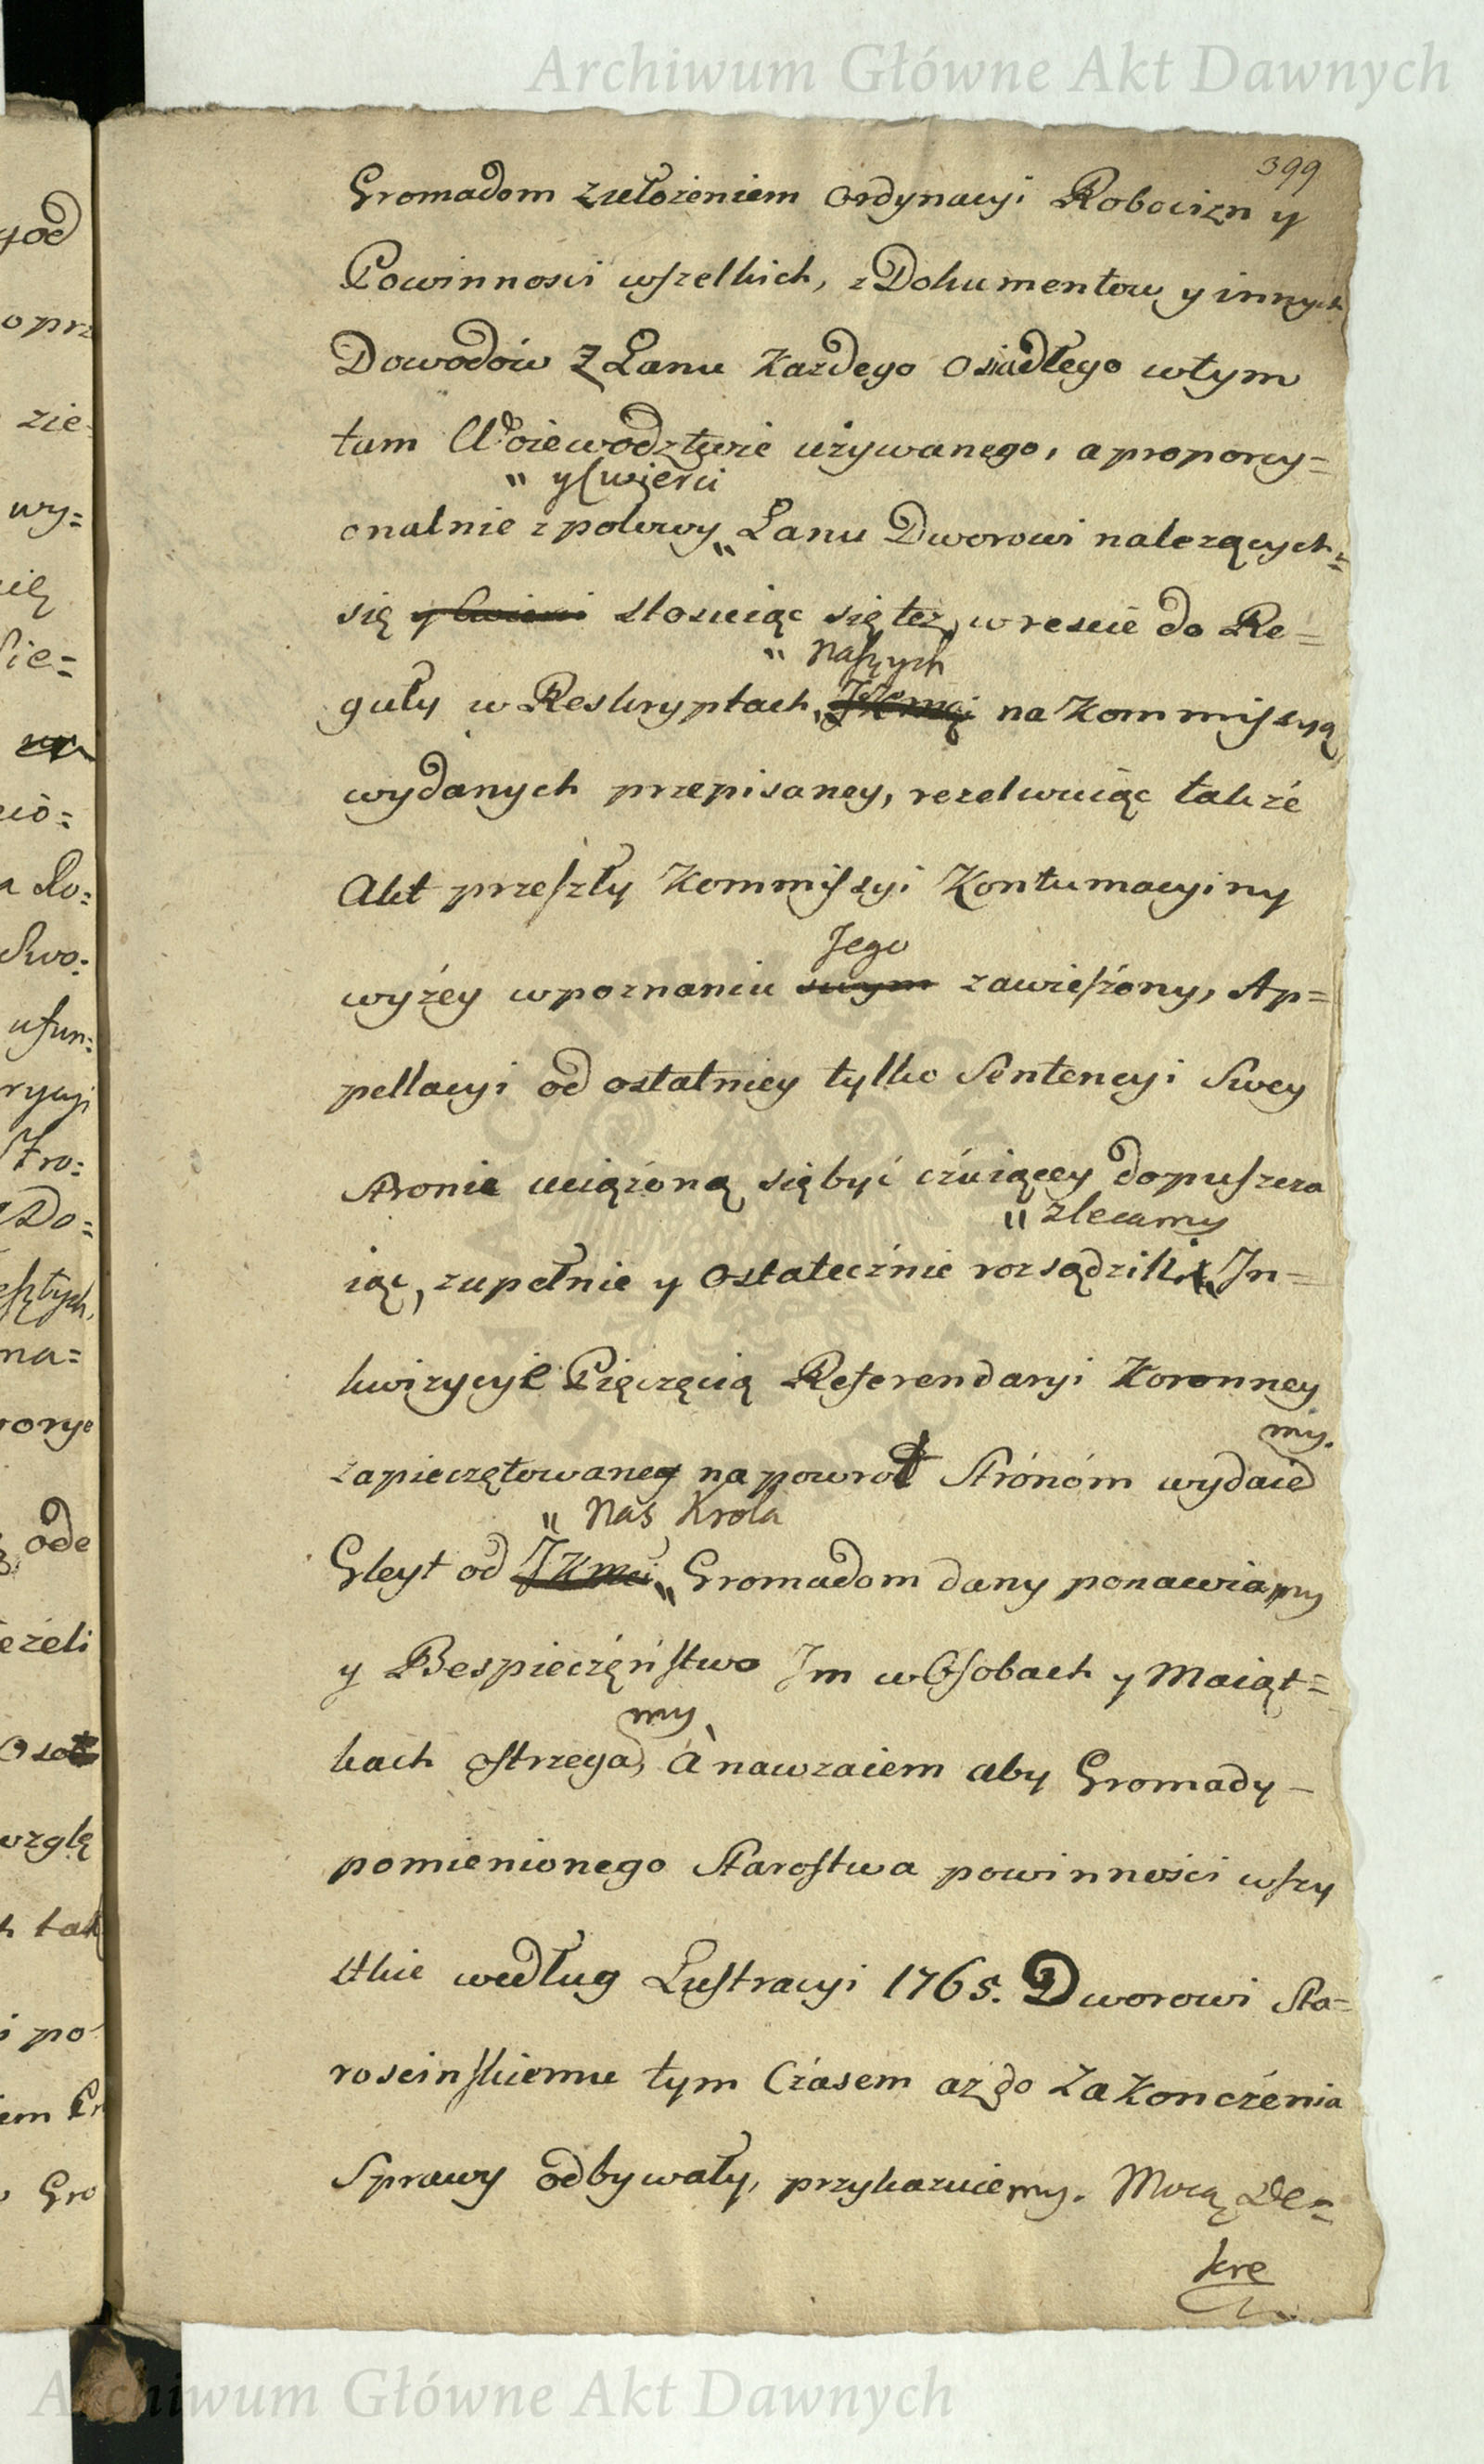 Archiwum Główne Akt Dawnych
399
Gromadom zułożeniem Ordynacyi Robocizn y
Powinnosci wszelkich, z Dokumentow y innych
Dowodów Z Łanu Każdego Osiadłego wtym
tam Woiewodztwie używanego, a proporcy=
" y ćwierci
onalnie z połowy " Łanu Dworowi należących=
się y ćwierci stosuiąc się też, w rescie do Re=
" naszych
guły w Reskryptach " JKMci na Kommissyą
wydanych przepisaney, rezolwuiąc także
Akt przeszły Kommissyi Kontumacyiny
Jego
wyżey wpoznaniu swym zawieszony, Ap=
pellacyi od ostatniey tylko Sentencyi Swey
Stronie uciążoną się być czuiącey dopuszcza
" zlecamy
iąc, zupełnie y Ostatecznie rozsądzili " In=
kwizycye Pięczęcią Referendaryi Koronney
my.
zapieczętowaney napowrot Strónóm wydaie
" Nas Krola
Gleyt od JKMci " Gromadom dany ponawiamy
y Bespieczęństwo Im w Osobach y Maiąt=
my
kach ostrzega, à nawzaiem aby Gromady –
pomienionego Starostwa powinności wszy
stkie według Lustracyi 1765. Dworowi Sta=
roscinskiemu tym Czasem aż do Zakonczenia
Sprawy odbywały, przykazuiemy. Mocą De=
kre
god
oprz
zie
wy=
się
sie=
ció=
a Ro=
Swo=
ufun=
rycyi
Stro=
Do=
na=
ode
eżeli
wzglę
h tak
i po
Gro
Archiwum Główne Akt Dawnych